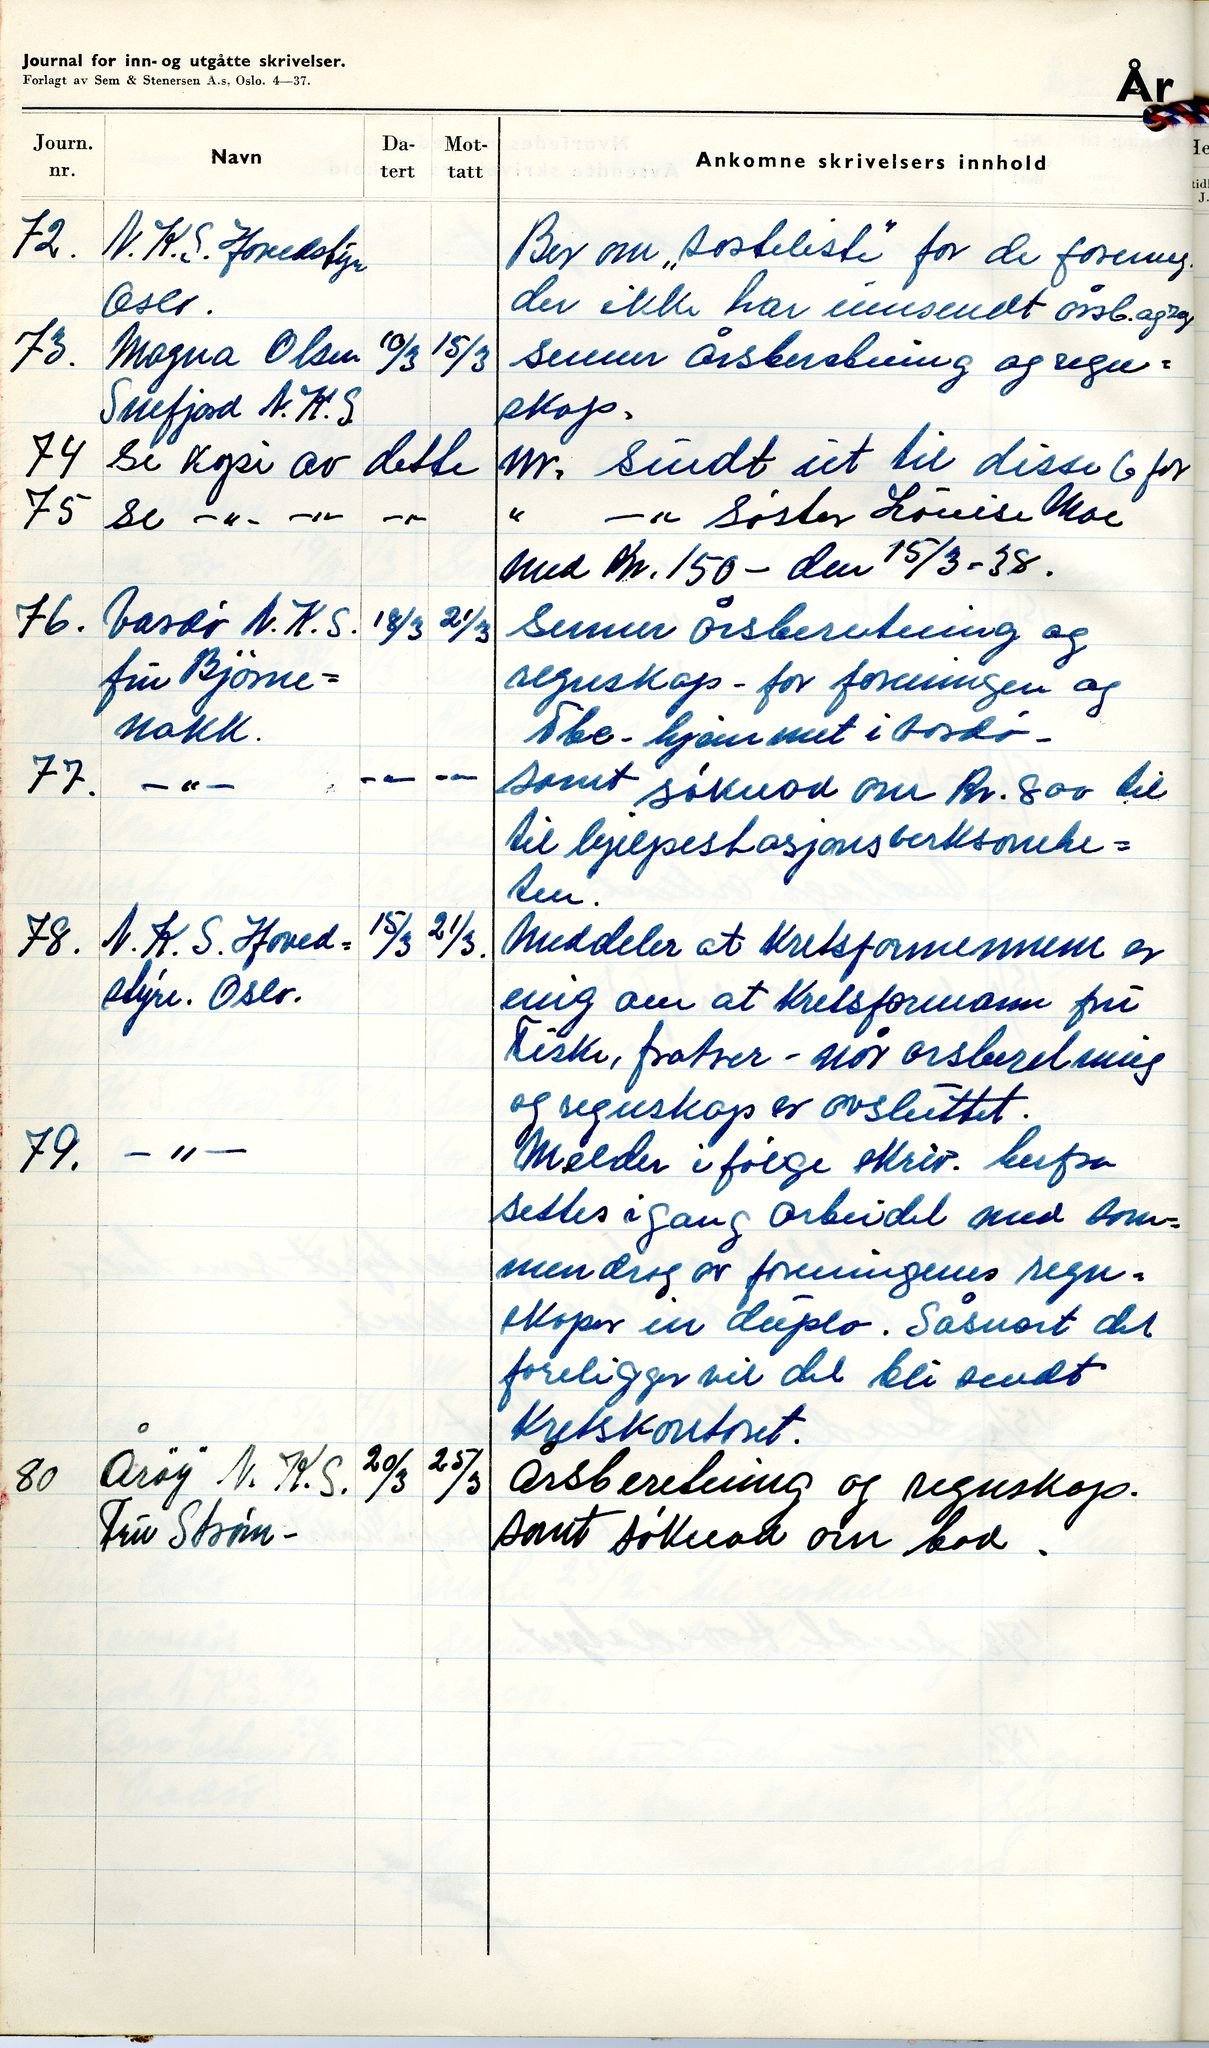 Journal for inn- og utgåtte skrivelser.
Forlagt av Sem & Stenersen A.s, Oslo. 4—37.
År
Journ. nr. Navn Da- tert Mot- tatt Ankomne skrivelsers innhold
72. N.K.S. Hovedstyre Ber om „Resteliste" for de forening.
Oslo. der ikke har innsendt årsb. og reg
73. Magna Olsen 10/3 15/3 Sender Årsberetning og regn=
Snefjord N.K.S skap.
74 Se kopi av dette nr. Sendt ut til disse 6 for
75 Se -"- -"- -"- " -"- Søster Lovise Moe
med Kr. 150 - den 15/3-38.
76. Vardø N.K.S. 18/3 21/3 Sender Årsberetning og
fru Bjørne= regnskap - for foreningen og
nakk. Tbc - hjemmet i Vardø -
77. -"- -"- -"- samt søknad om Kr. 800 til
til hjelpestasjonsverksomhe=
ten.
78. N.K.S. Hoved= 15/3 21/3. Meddeler at Kretsformennene er
styre. Oslo. enig om at Kretsformann fru
Fiske, fratrer - når årsberetning
og regnskap er avsluttet.
79. -"- Melder ifølge skriv. herfra
settes igang arbeidet med sam=
mendrag av foreningenes regn=
skaper in duplo. Såsnart det
foreligger vil det bli sendt
Kretskontoret.
80 Årøy N.K.S. 20/3 25/3 Årsberetning og regnskap.
Fru Strøm - samt søknad om bad.